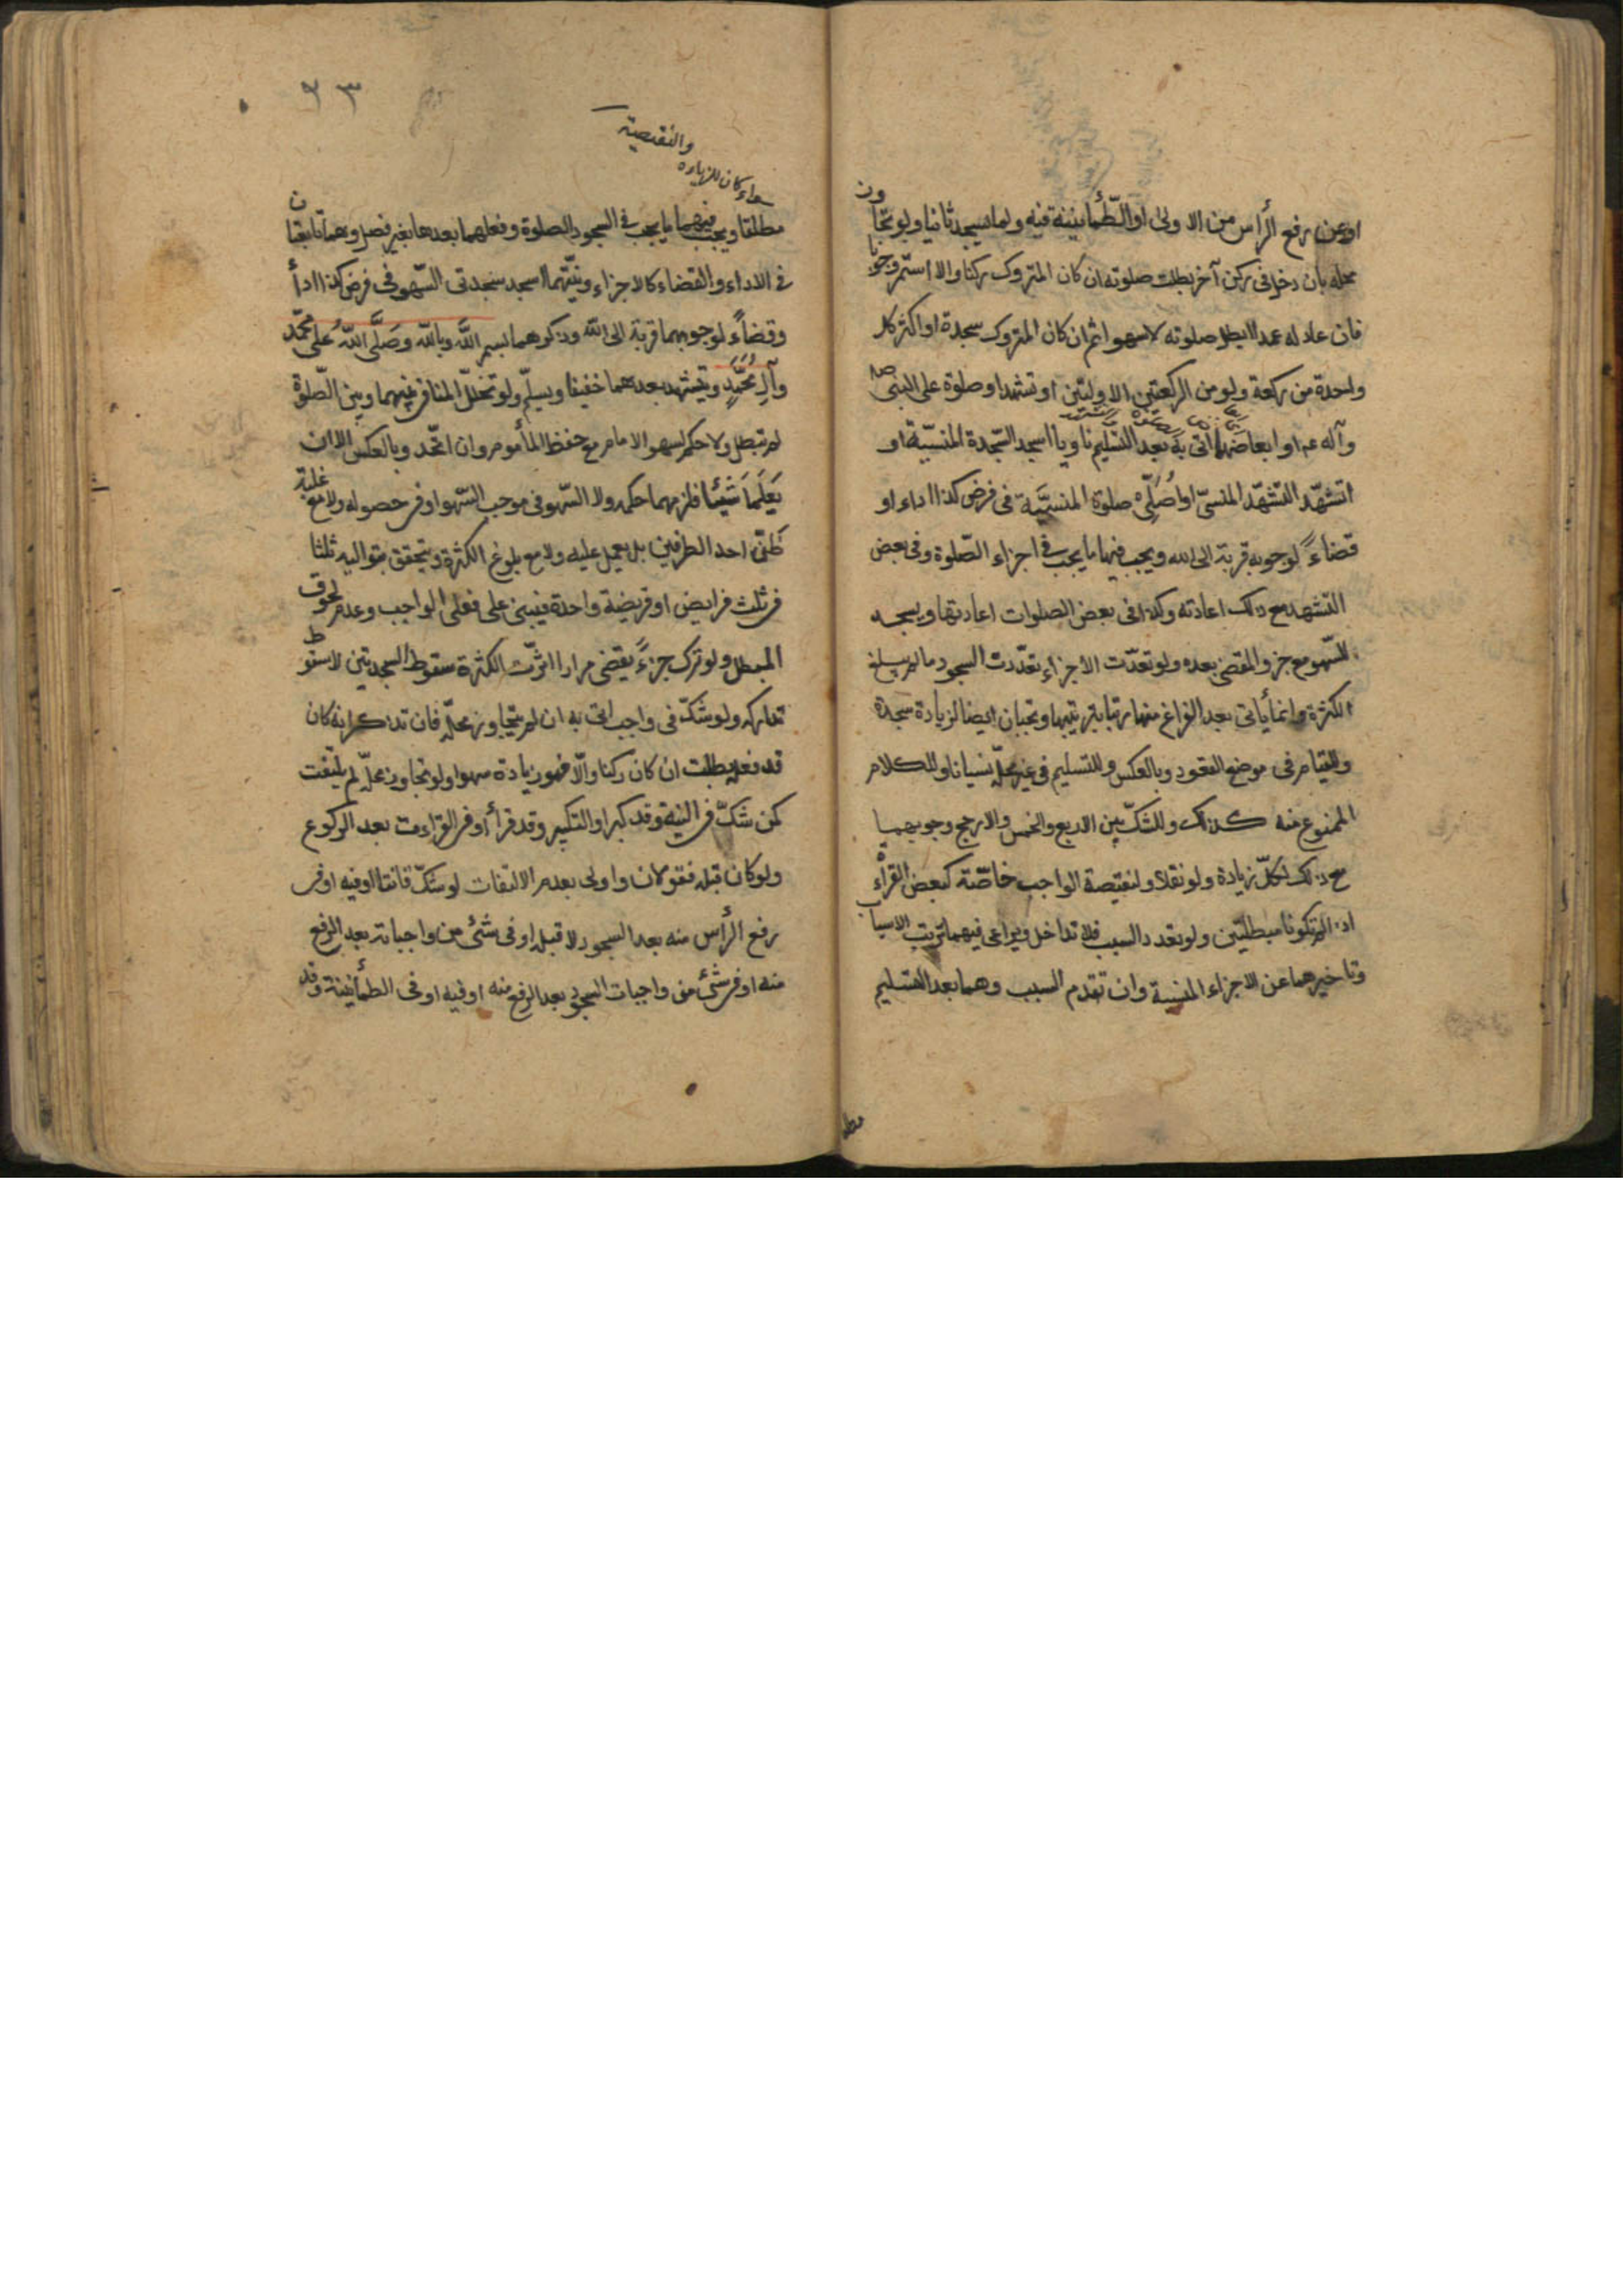 او عن رفع الرأس من الاولى او الطّمأنينة فيه ولما يسجد ثانيا ولو تجاوز
محله بان دخل فى ركن آخر بطلت صلوته ان كان المتروك ركنا والا استمر وجوبا
فان عاد له عمدا ابطل صلوته لا سهوا ثم ان كان المتروك سجدة او اكثر كل
واحدة من ركعة ولو من الركعتين الاوليتين او تشهدا وصلوة على النبى ص
وآله عم او ابعاضها اتى به بعد التسليم ناويا اسجد السّجدة المنسيّة او
اتشهّد التشهّد المنسىّ او اُصَلّى صلوة المنسيَّة فى فرض كذا اداء او
قضاءً لوجوبه قربة الى الله ويجب فيها ما يجب فى اجزاء الصّلوة وفى بعض
التشهد مع ذلك اعادته وكذا فى بعض الصلوات اعادتها ويسجد
للسّهو مع جزو المقضى بعده ولو تعدّت الاجزاء تعدّدت السجود ما لم يبلغ
الكثرة وانما يأتى بعد الفراغ منها مرتبا بترتيبها وتجبان ايضا لزيادة سجدة
والقيام فى موضع القعود وبالعكس وللتسليم فى غير محلّه نسيانا وللكلام
الممنوع منه كذلك وللشكّ بين الاربع والخمس والارجح وجوبهما
مع ذلك لكلّ زيادة ولو نفلا ولنقيصة الواجب خاصّة كبعض القراءة
اذا لم تكونا مبطلتين ولو تعدد السبب فلا تداخل ويراعى فيهما ترتيب الاسباب
وتاخيرهما عن الاجزاء المنسية وان تقدم السبب وهما بعد التسليم
٩٣
والنقيصة
سواء كان للزيادة
مطلقا ويجب فيهما ما يجب فى السجود الصلوة وفعلهما بعدها بغير فصل وهما تابعتان
فى الاداء والقضاء كالاجزاء ونيّتهما اسجد سجدتى السّهو فى فرض كذا اداءً
وقضاءً لوجوبهما قربة الى الله وذكرهما بسم الله وبالله وصَلَّى اللهُ على محمّد
وآلِ مُحَمَّدٍ ويتشهد بعدهما خفيفا ويسلّم ولو تخلل المنافى بينهما وبين الصّلوة
لم تبطل ولا حكم لسهو الامام مع حفظ المأموم وان اتحد وبالعكس الا ان
يَعْلَمَا شَيْئًا فلزمهما حكمه ولا السّهو فى موجب السّهو او فى حصوله ولا مع غلبة
ظنّ احد الطرفين بل يعمل عليه ولا مع بلوغ الكثرة ويتحقق بتواليه ثلثا
فى ثلث فرايض او فريضة واحدة فيبنى على فعل الواجب وعدم لحوق
المبطل ولو ترك جزءً يقضى مرارا اثرت الكثرة سقوط السجدتين لا سقوط
تداركه ولو شكّ فى واجب اتى به ان لم يتجاوز محلّه فان تذكر انه كان
قد فعله بطلت ان كان ركنا والّا فهو زيادة سهوا ولو تجاوز محلّه لم يلتفت
كمن شكّ فى النية وقد كبر او التكبير وقد قرأ او فى القراءة بعد الركوع
ولو كان قبله فقولان واولى بعدم الالتفات لو شكّ قانتا او فيه او فى
رفع الرأس منه بعد السجود لا قبله او فى شئ من واجباته بعد الرفع
منه او فى شئ من واجبات السجود بعد الرفع منه او فيه او فى الطمأنينة وقد